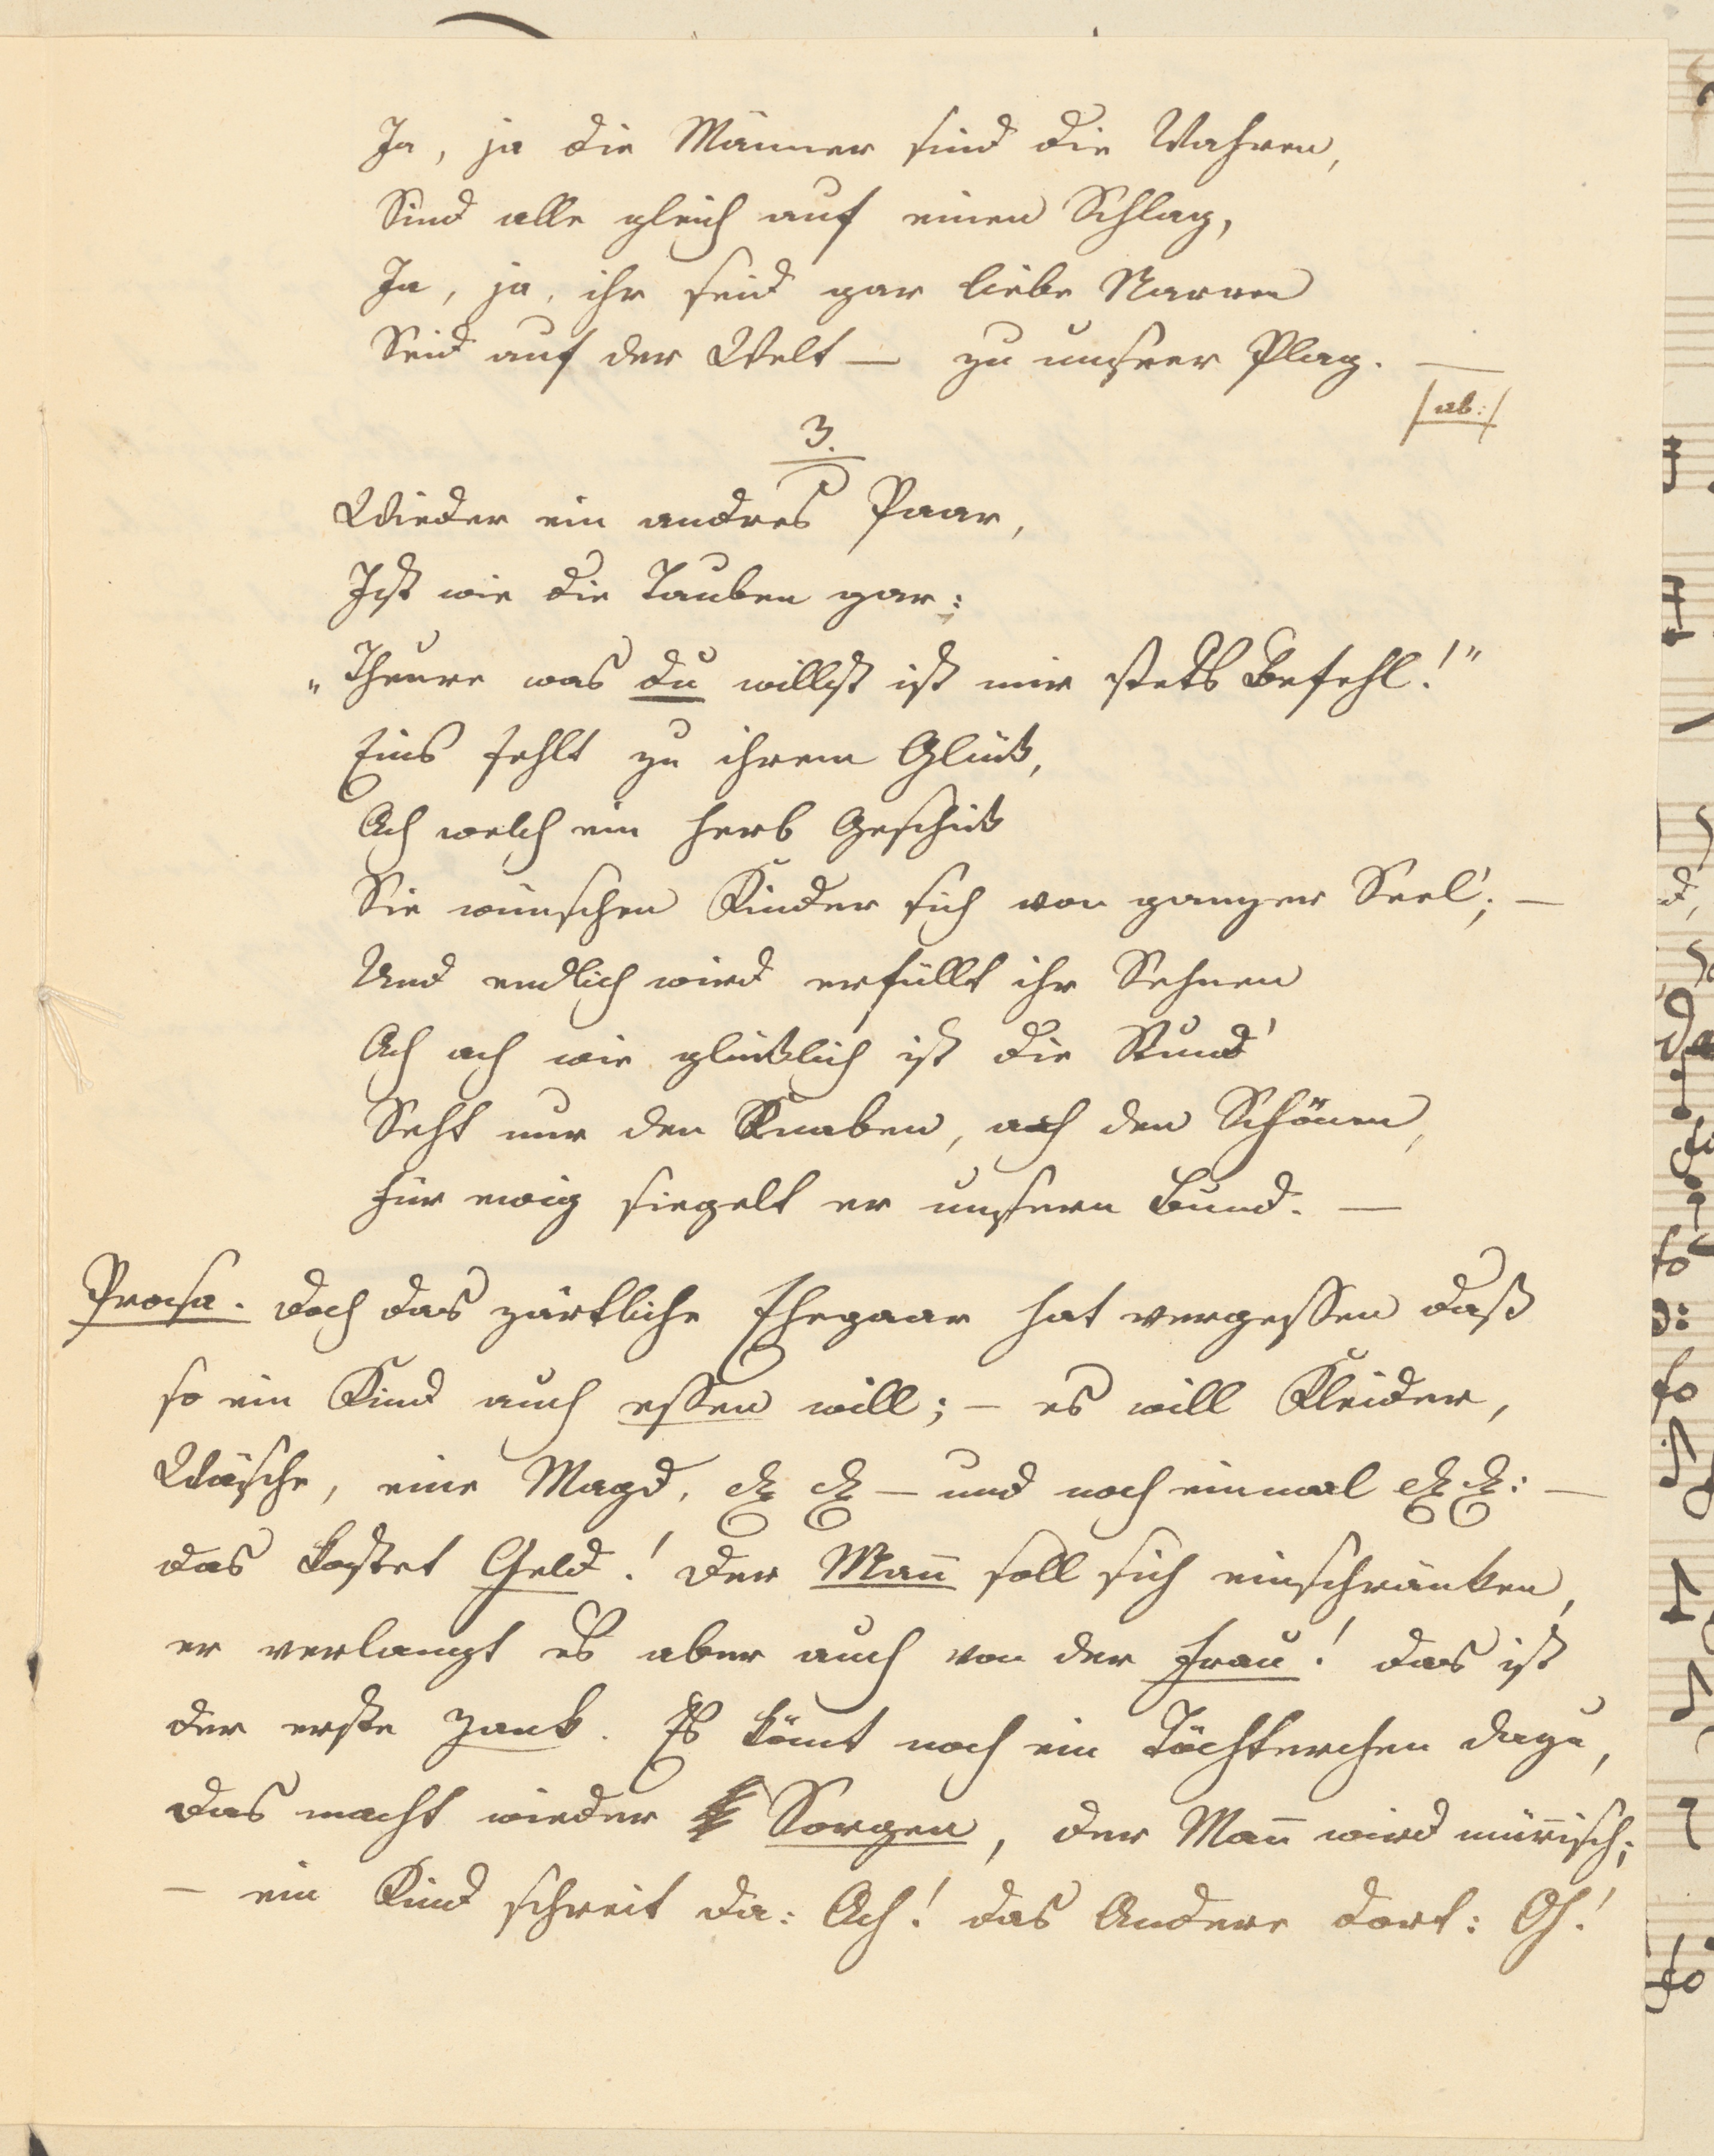 Ja, ja die Männer sind die Wahren,
Sind alle gleich auf einen Schlag,
Ja, ja, ihr seid gar liebe Narren
Seid auf der Welt — zu unsrer Plag. —
/ab:/
3.
Wieder ein andres Paar,
Ist wie die Tauben gar:
„Theure was du willst ist mir stets Befehl!"
Eins fehlt zu ihrem Glük,
Ach welch ein herb Geschik
Sie wünschen Kinder sich von ganzer Seel'; —
Und endlich wird erfüllt ihr Sehnen
Ach ach wie glüklich ist die Stund'
Seht nur den Knaben, ach den Schönen,
Für ewig siegelt er unsern Bund. —
Prosa. Doch das zärtliche Ehepaar hat vergessen daß
so ein Kind auch essen will; – es will Kleider,
Wäsche, eine Magd, etz etz – und noch einmal etz etz: —
das kostet Geld! Der Man̅ soll sich einschränken,
er verlangt es aber auch von der Frau! das ist
der erste Zank. Es kom̅t noch ein Töchterchen dazu,
das macht wieder Sorgen, der Man̅ wird mürrisch;
– ein Kind schreit da: Ach! das Andere dort: Oh!